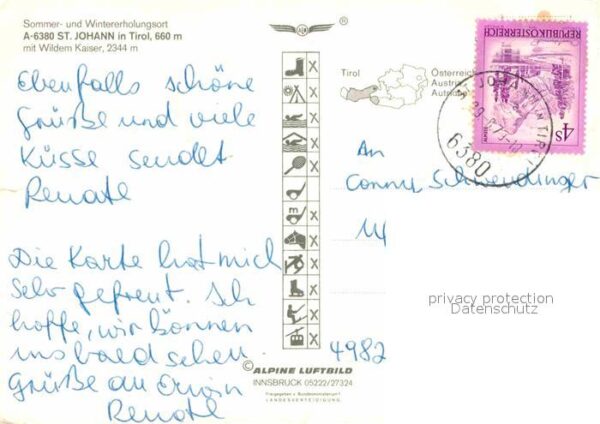 Sommer- und Wintererholungsort
A-6380 ST. JOHANN in Tirol, 660 m
mit Wildem Kaiser, 2344 m
Ebenfalls schöne
Grüße und viele
Küsse sendet
Renate
Die Karte hat mich
sehr gefreut. Ich
hoffe, wir können
uns bald sehen.
Grüße an
Renate
Tirol
Österreich
Austria
REPUBLIK ÖSTERREICH
4S
6380
An
Conny Schwendinger
privacy protection
Datenschutz
4982
© ALPINE LUFTBILD
INNSBRUCK 05222/27324
Freigegeben v. Bundesministerium f.
LANDESVERTEIDIGUNG